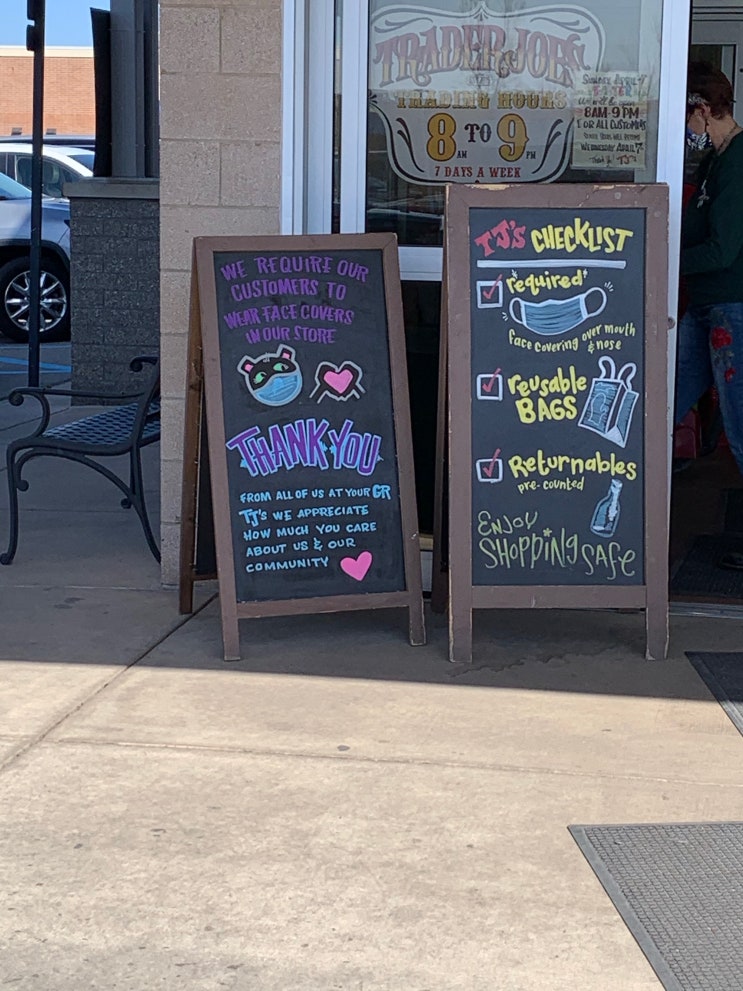 TRADER JOE'S
TRADING HOURS
8 AM TO 9 PM
7 DAYS A WEEK
SUNDAY APRIL
8AM-9PM
FOR ALL CUSTOMERS
WEDNESDAY APRIL 7
Thank You TJ's
WE REQUIRE OUR
CUSTOMERS TO
WEAR FACE COVERS
IN OUR STORE
THANK YOU
FROM ALL OF US AT YOUR GR
TJ'S WE APPRECIATE
HOW MUCH YOU CARE
ABOUT US & OUR
COMMUNITY
TJ'S CHECKLIST
required*
face covering over mouth
& nose
reusable
BAGS
Returnables
pre-counted
ENJOY
SHOPPING SAFE